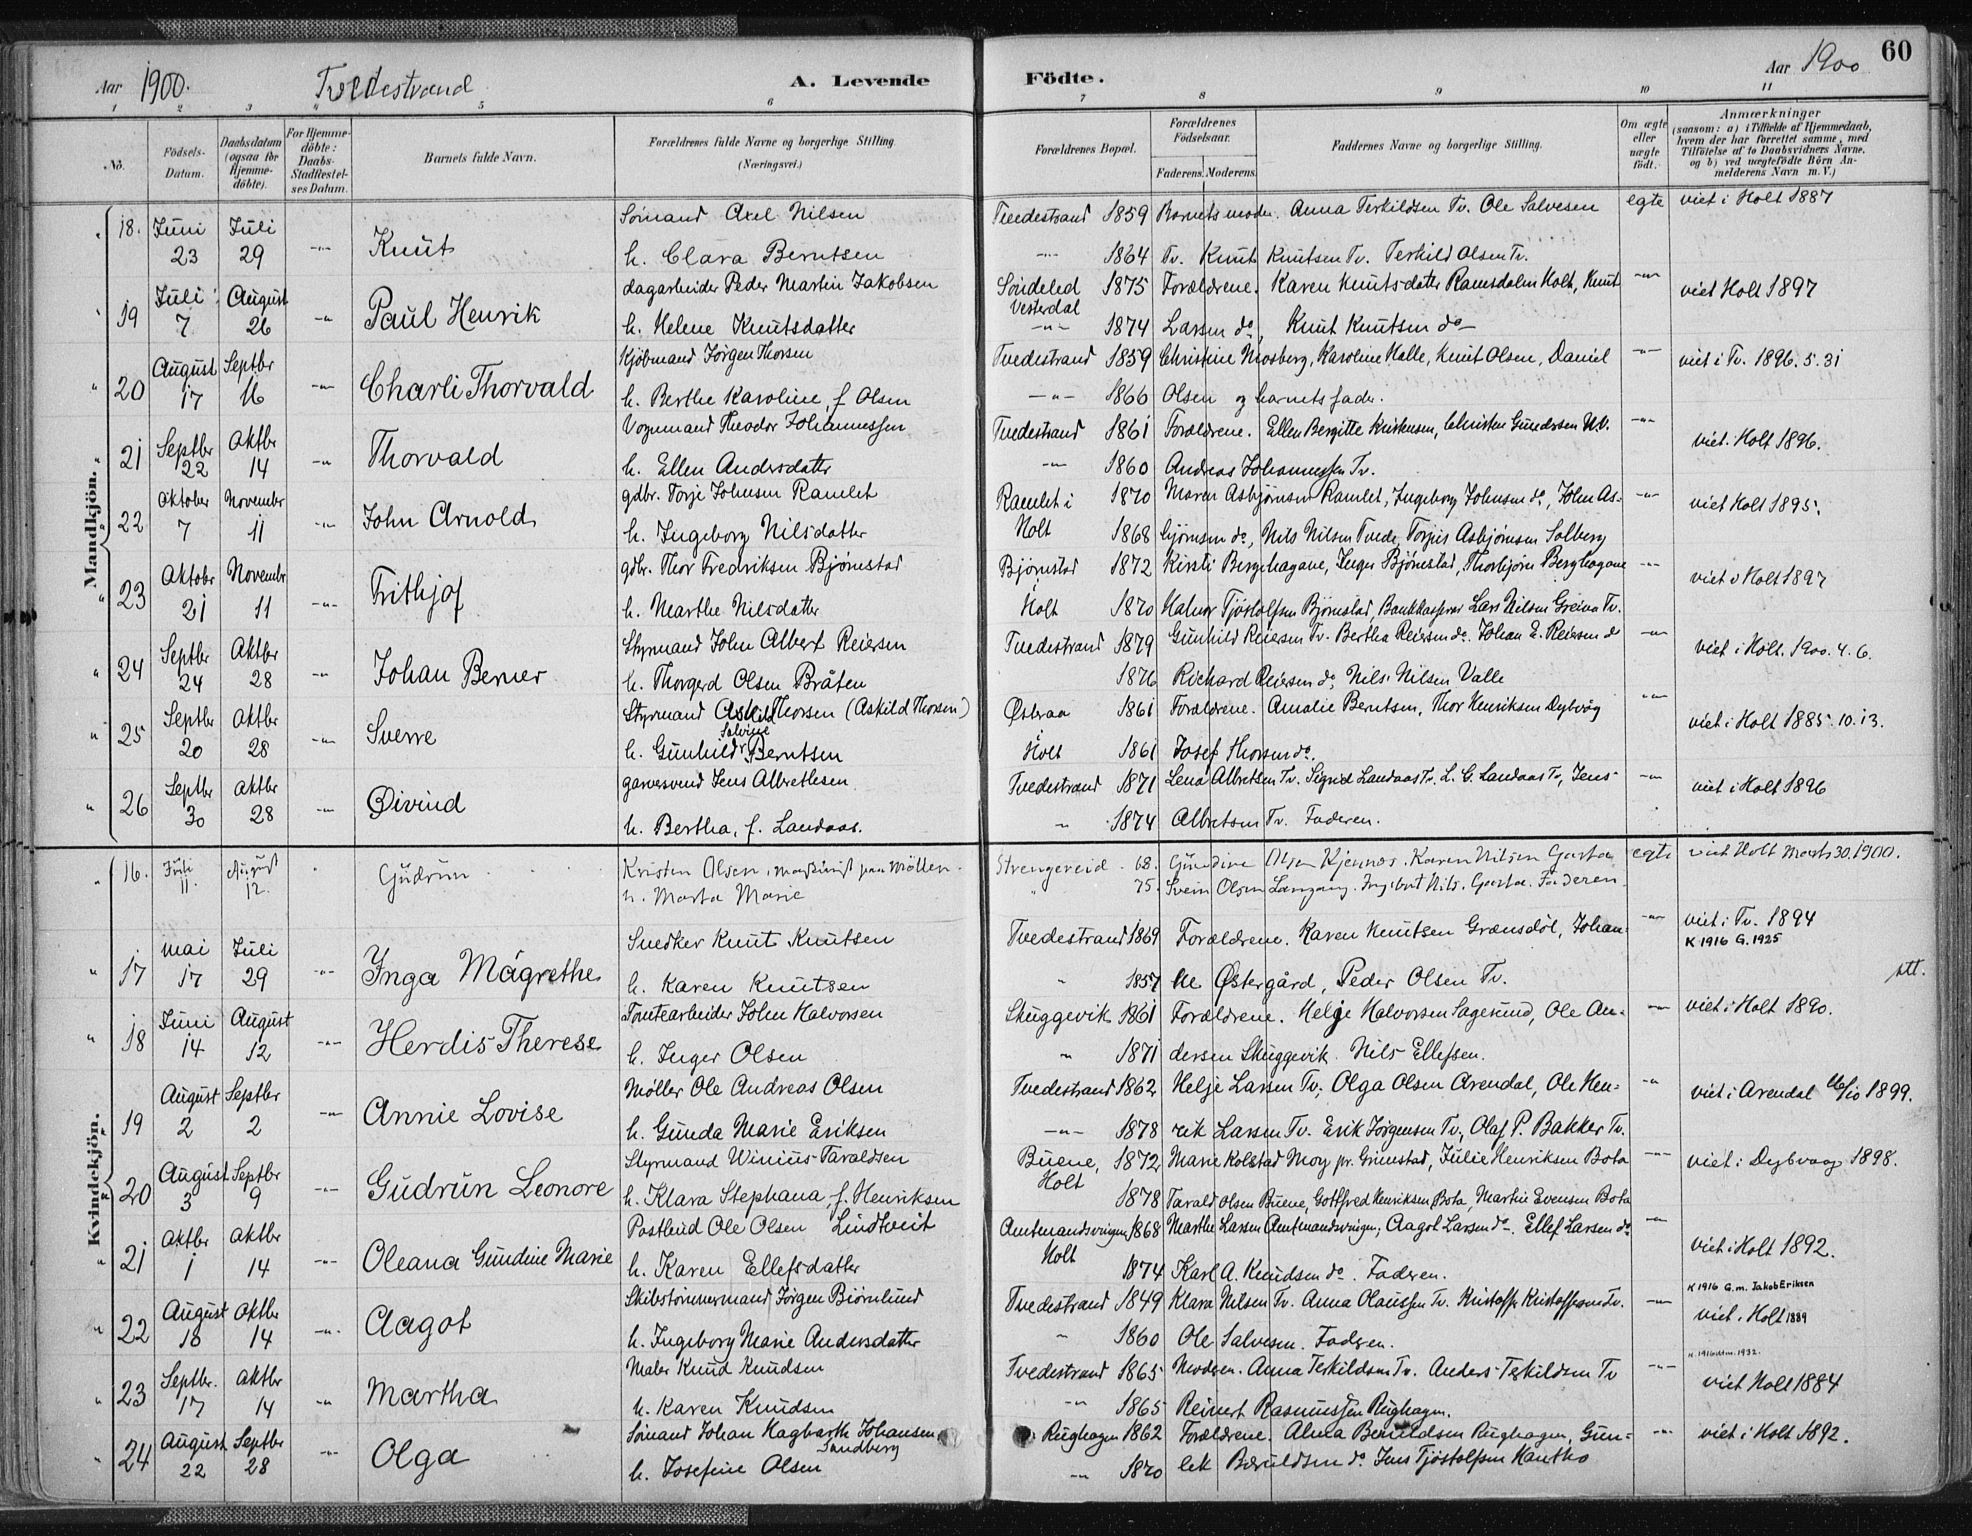 Aar 1900. Tvedestrand A. Levende Födte. Aar 1900 60
1 2 3 4 5 6 7 8 9 10 11
No. Födsels-Datum. Daabsdatum (ogsaa for Hjemme-döbte). For Hjemme-döbte: Daabs-Stadfæstel-ses Datum. Barnets fulde Navn. Forældrenes fulde Navne og borgerlige Stilling (Næringsvei.) Forældrenes Bopæl. Forældrenes Födselsaar. Faderens. Moderens. Faddernes Navne og borgerlige Stilling. Om ægte eller uægte födt. Anmærkninger (saasom: a) i Tilfælde af Hjemmedaab, hvem der har forrettet samme, med Tilföielse af to Daabsvidners Navne, og b) ved uægtefödte Börn An-melderens Navn m. V.)
Mandkjön.
18. Juni Juli Sömand Axel Nilsen Tvedestrand 1859 Barnets moder. Anna Terkildsen Tv. Ole Salvesen egte viet i Holt 1887
23 29 -"- Knut h. Clara Berntsen -"- 1864 Tv. Knut Knutsen Tv. Terkild Olsen Tv.
19 Juli August dagarbeider Peder Martin Jakobsen Söndeled 1875 Forældrene. Karen Knutsdatter Ramsdalen Holt, Knut -"- viet Holt 1897
7 26 -"- Paul Henrik h. Helene Knutsdatter Vesterdal -"- 1874 Larsen do, Knut Knutsen do-
20 August Septbr Kjöbmand Jörgen Thorsen Tvedestrand 1859 Christine Mosberg, Karoline Halle, Knut Olsen, Daniel -"- viet i Tv. 1896.5.31
17 16 -"- Charli Thorvald h. Berthe Karoline, f. Olsen -"- 1866 Olsen og barnets fader.
21 Septbr Oktbr Vognmand Theodor Johannessen Tvedestrand 1861 Forældrene. Ellen Bergitte Kristensen, Christen Gundersen -"- viet i Holt 1896.
22 14 -"- Thorvald h. Ellen Andersdatter -"- 1860 Andreas Johannessen Tv.
22 Oktober November gdbr. Torje Johnsen Ramlet Ramlet i 1870 Maren Asbjörnsen Ramlet, Ingeborg Johnsen do, John As- -"- viet Holt 1895.
7 11 -"- John Arnold h. Ingeborg Nilsdatter Holt 1868 björnsen do, Nils Nilsen Tvede, Torjus Asbjörnsen Solberg
23 Oktobr Novembr gdbr. Thor Fredriksen Björnstad Björnstad 1872 Kirsti Berghagane, Inger Björnstad, Thorbjörn Berghagane -"- viet i Holt 1897
21 11 -"- Frithjof h. Marthe Nilsdatter Holt 1870 Halvor Tjöstolfsen Björnstad, Bankkasserer Lars Nilsen Tv.
24 Septbr Oktbr Styrmand John Albert Reiersen Tvedestrand 1879 Gunhild Reiersen Tv. Bertha Reiersen do. Johan E. Reiersen do -"- viet i Holt. 1900.4.6.
24 28 -"- Johan Berner h. Thorgerd Olsen Bråten 1876 Richard Reiersen do, Nils Nilsen Valle
25 Septbr Oktbr Styrmand Askild Thorsen (Askild Thorsen) Österaa 1861 Forældrene. Amalie Berntsen, Thor Henriksen Dybvåg -"- viet i Holt 1885.10.13.
20 28 -"- Sverre h. Gunhild Salvine Berntsen Holt 1861 Josef Thorsen do.
26 Septbr Oktbr garversvend Jens Albrethesen Tvedestrand 1871 Lena Albretsen Tv. Sigrid Landaas Tv. L. G. Landaas Tv, Jens -"- viet i Holt 1896
30 28 -"- Öivind h. Bertha, f. Landaas. -"- 1874 Albretsen Tv. Faderen.
Kvindekjön.
16. Juli August Kristen Olsen, maskinist paa Möllen Strengereid 68. Gundine Olsen Kjennes. Karen Nilsen Garta egte viet Holt Marts 30. 1900.
11. 12. Gudrun h. Marta Marie " 75. Svein Olsen Langang. Ingebret Nils. Garta. Faderen
17 Mai Juli Snedker Knut Knutsen Tvedestrand 1869 Forældrene. Karen Knutsen Grænsdöl, Johan- -"- viet i Tv. 1894
K 1916 G. 1925
17 29 -"- Inga Mågrethe h. Karen Knutsen " 1857 ne Östergård, Peder Olsen Tv. att.
18 Juni August Tomtearbeider John Halvorsen Skuggevik 1861 Forældrene. Helge Halvorsen Sagesund, Ole An- -"- viet i Holt 1890.
14 12 -"- Herdis Therese h. Inger Olsen " 1871 dersen Skuggevik. Nils Ellefsen.
19 August Septbr Möller Ole Andreas Olsen Tvedestrand 1862 Helje Larsen Tv, Olga Olsen Arendal, Ole Hen- -"- viet i Arendal 1899.
2 2 -"- Annie Lovise h. Gunda Marie Eriksen -"- 1878 rik Larsen Tv. Erik Jörgensen Tv, Olaf P. Bakker Tv.
20 August Septbr Styrmand Winius Taraldsen Buene, 1872 Marie Kolstad Moy pr. Grimstad, Julie Henriksen Bota -"- viet i Dybvaag 1898.
3 9 -"- Gudrun Leonore h. Klara Stephana, f. Henriksen Holt 1878 Tarald Olsen Buene, Gotfred Henriksen Bota, Martin Evensen Bota
21 Oktbr Oktbr Postbud Ole Olsen Lindtveit Amtmandsvingen 1868 Marthe Larsen Amtmandsvingen, Aagot Larsen do-. Ellef Larsen do -"- viet i Holt 1892.
1 14 -"- Oleana Gundine Marie h. Karen Ellefsdatter Holt 1874 Karl A. Knudsen do. Faderen.
K 1916 G.m. Jakob Eriksen
22 August Oktbr Skibstömmermand Jörgen Biörnlund Tvedestrand 1849 Klara Nilsen Tv. Anna Olaussen Tv. Kristoffer Kristoffersen Tv. -"- viet i Holt 1889
18 14 -"- Aagot h. Ingeborg Marie Andersdatter " 1860 Ole Salvesen. Faderen.
23 Septbr. Oktbr Maler Knud Knudsen Tvedestrand 1865 Moderen. Anna Terkildsen Tv. Anders Terkildsen Tv -"- viet Holt 1884
17 14 -"- Martha h. Karen Knudsen -"- 1865 Reinert Rasmussen Rughagen.
24 August Septbr Sömand Johan Hagbarth Johansen Sandberg Rughagen 1862 Forældrene. Alma Beruldsen Rughagen, Gun- -"- viet i Holt 1892.
22 28 -"- Olga h. Josefine Olsen -"- 1870 lek Beruldsen do. Jens Tjöstolfsen Kantho